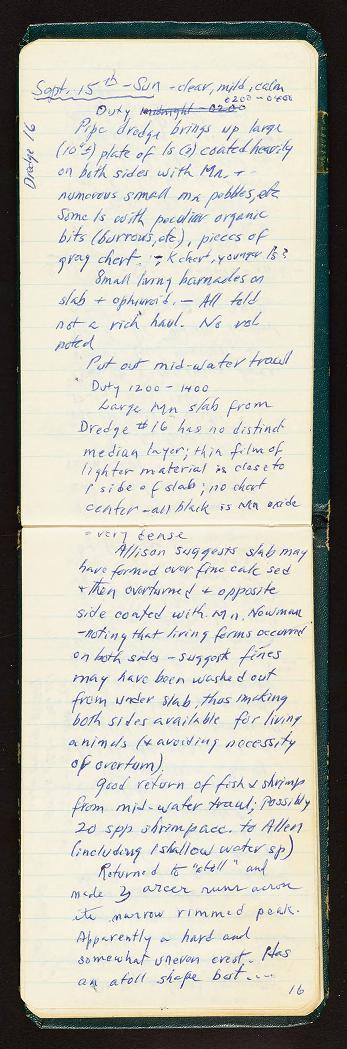 Sept. 15th - Sun - clear, mild, calm
0200 - 0400
Duty midnight - 0200
Dredge 16
Pipe dredge brings up large
(10"±) plate of ls (?) coated heavily
on both sides with Mn. +
numerous small mn pebbles, etc
Some ls with peculiar organic
bits (burrows, etc), pieces of
gray chert. ; K chert, younger ls?
Small living barnacles on
slab + ophiuroid. - All told
not a rich haul. No vol.
noted
Put out mid-water trawl
Duty 1200 - 1400
Large Mn slab from
Dredge #16 has no distinct
median layer; thin film of
lighter material is close to
1 side of slab; no chert
center - all black is Mn oxide
- very dense
Allison suggests slab may
have formed over fine calc sed
+ then overturned + opposite
side coated with Mn. Newman
- noting that living forms occurred
on both sides - suggests fines
may have been washed out
from under slab, thus making
both sides available for living
animals (+ avoiding necessity
of overturn).
Good return of fish & shrimp
from mid-water trawl; possibly
20 spp shrimp acc. to Allen
(including 1 shallow water sp)
Returned to "atoll" and
made 3 arcer runs across
its narrow rimmed peak.
Apparently a hard and
somewhat uneven crest. Has
an atoll shape but....
16